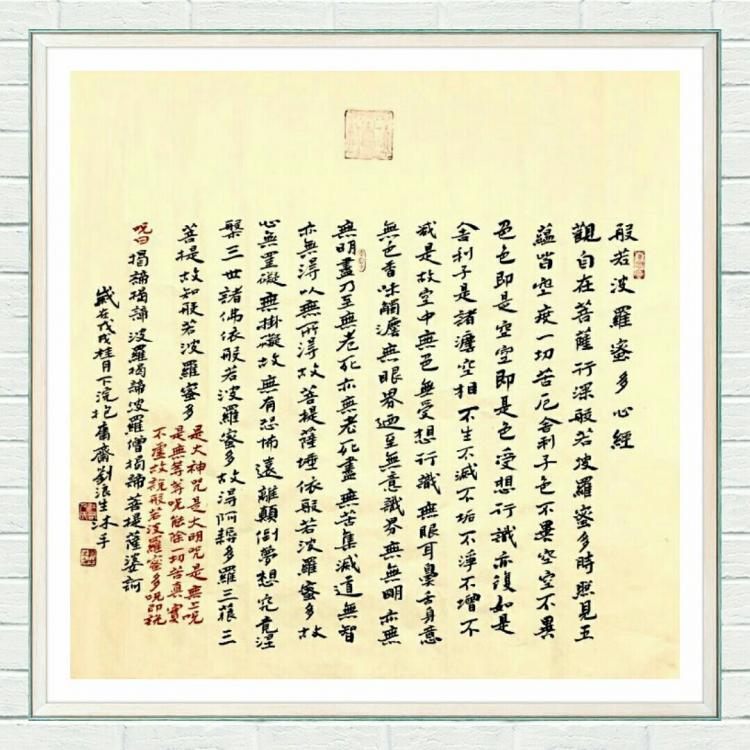 般若波羅蜜多心經
觀自在菩薩行深般若波羅蜜多時照見五
蘊皆空度一切苦厄舍利子色不異空空不異
色色即是空空即是色受想行識亦復如是
舍利子是諸灋空相不生不滅不垢不淨不增不
減是故空中無色無受想行識無眼耳鼻舌身意
無色香味觸灋無眼界迺至無意識界無無明亦無
無明盡乃至無老死亦無老死盡無苦集滅道無智
亦無得以無所得故菩提薩埵依般若波羅蜜多故
心無罣礙無掛礙故無有恐怖遠離顛倒夢想究竟涅
槃三世諸佛依般若波羅蜜多故得阿耨多羅三藐三
菩提故知般若波羅蜜多
是大神咒是大明呪是無上呪
是無等等呪能除一切苦真實
不虛故說般若波羅蜜多呪即說
呪曰揭諦揭諦波羅揭諦波羅僧揭諦菩提薩婆訶
歲在戊戌桂月下浣抱庸齋劉浪生沐手